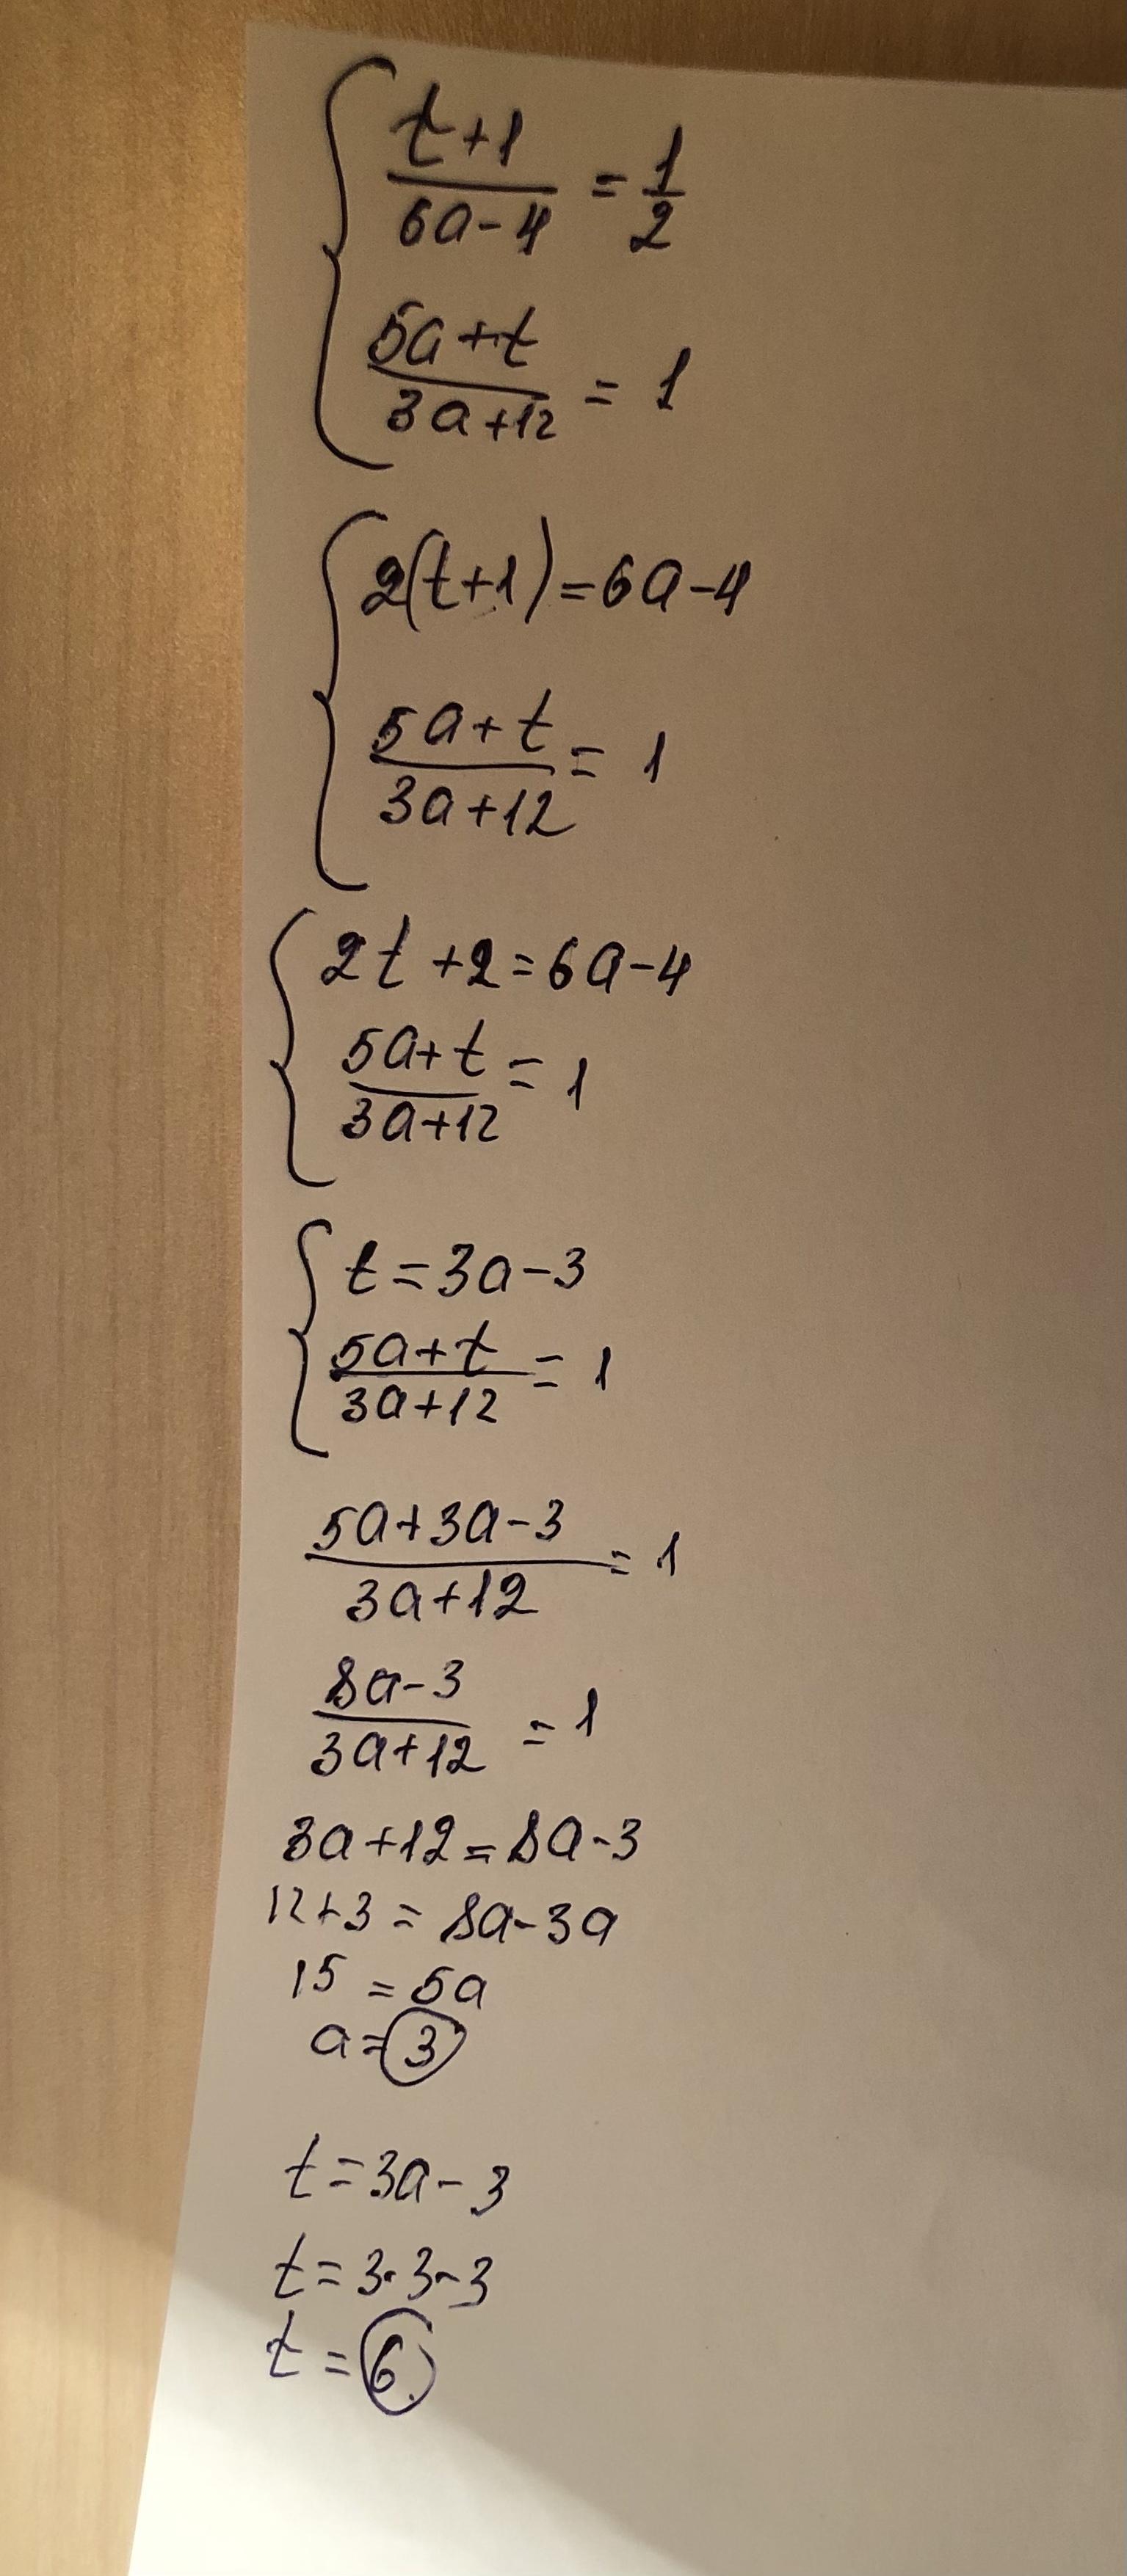 t+1
6a-4
= 1/2
5a+t
3a+12
= 1
2(t+1)=6a-4
5a+t
3a+12
= 1
2t+2=6a-4
5a+t
3a+12
= 1
t=3a-3
5a+t
3a+12
= 1
5a+3a-3
3a+12
= 1
8a-3
3a+12
= 1
3a+12=8a-3
12+3=8a-3a
15=5a
a=3
t=3a-3
t=3·3-3
t=6.